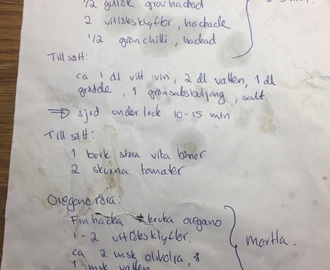 1/2 gulsk grovhackad
2 vitlöksklyftor, hackade
1/2 grön chilli, hackad
Tillsätt:
ca 1 dl vitt vin, 2 dl vatten, 1 dl
grädde, 1 grönsaksbuljong, salt.
⇒ sjud under lock 10-15 min
Tillsätt:
1 burk stora vita bönor
2 skurna tomater
Oreganoröra:
Finhacka kruka oregano
1-2 vitlöksklyftor
ca 2 msk olivolja,
1 msk vatten
mortla.